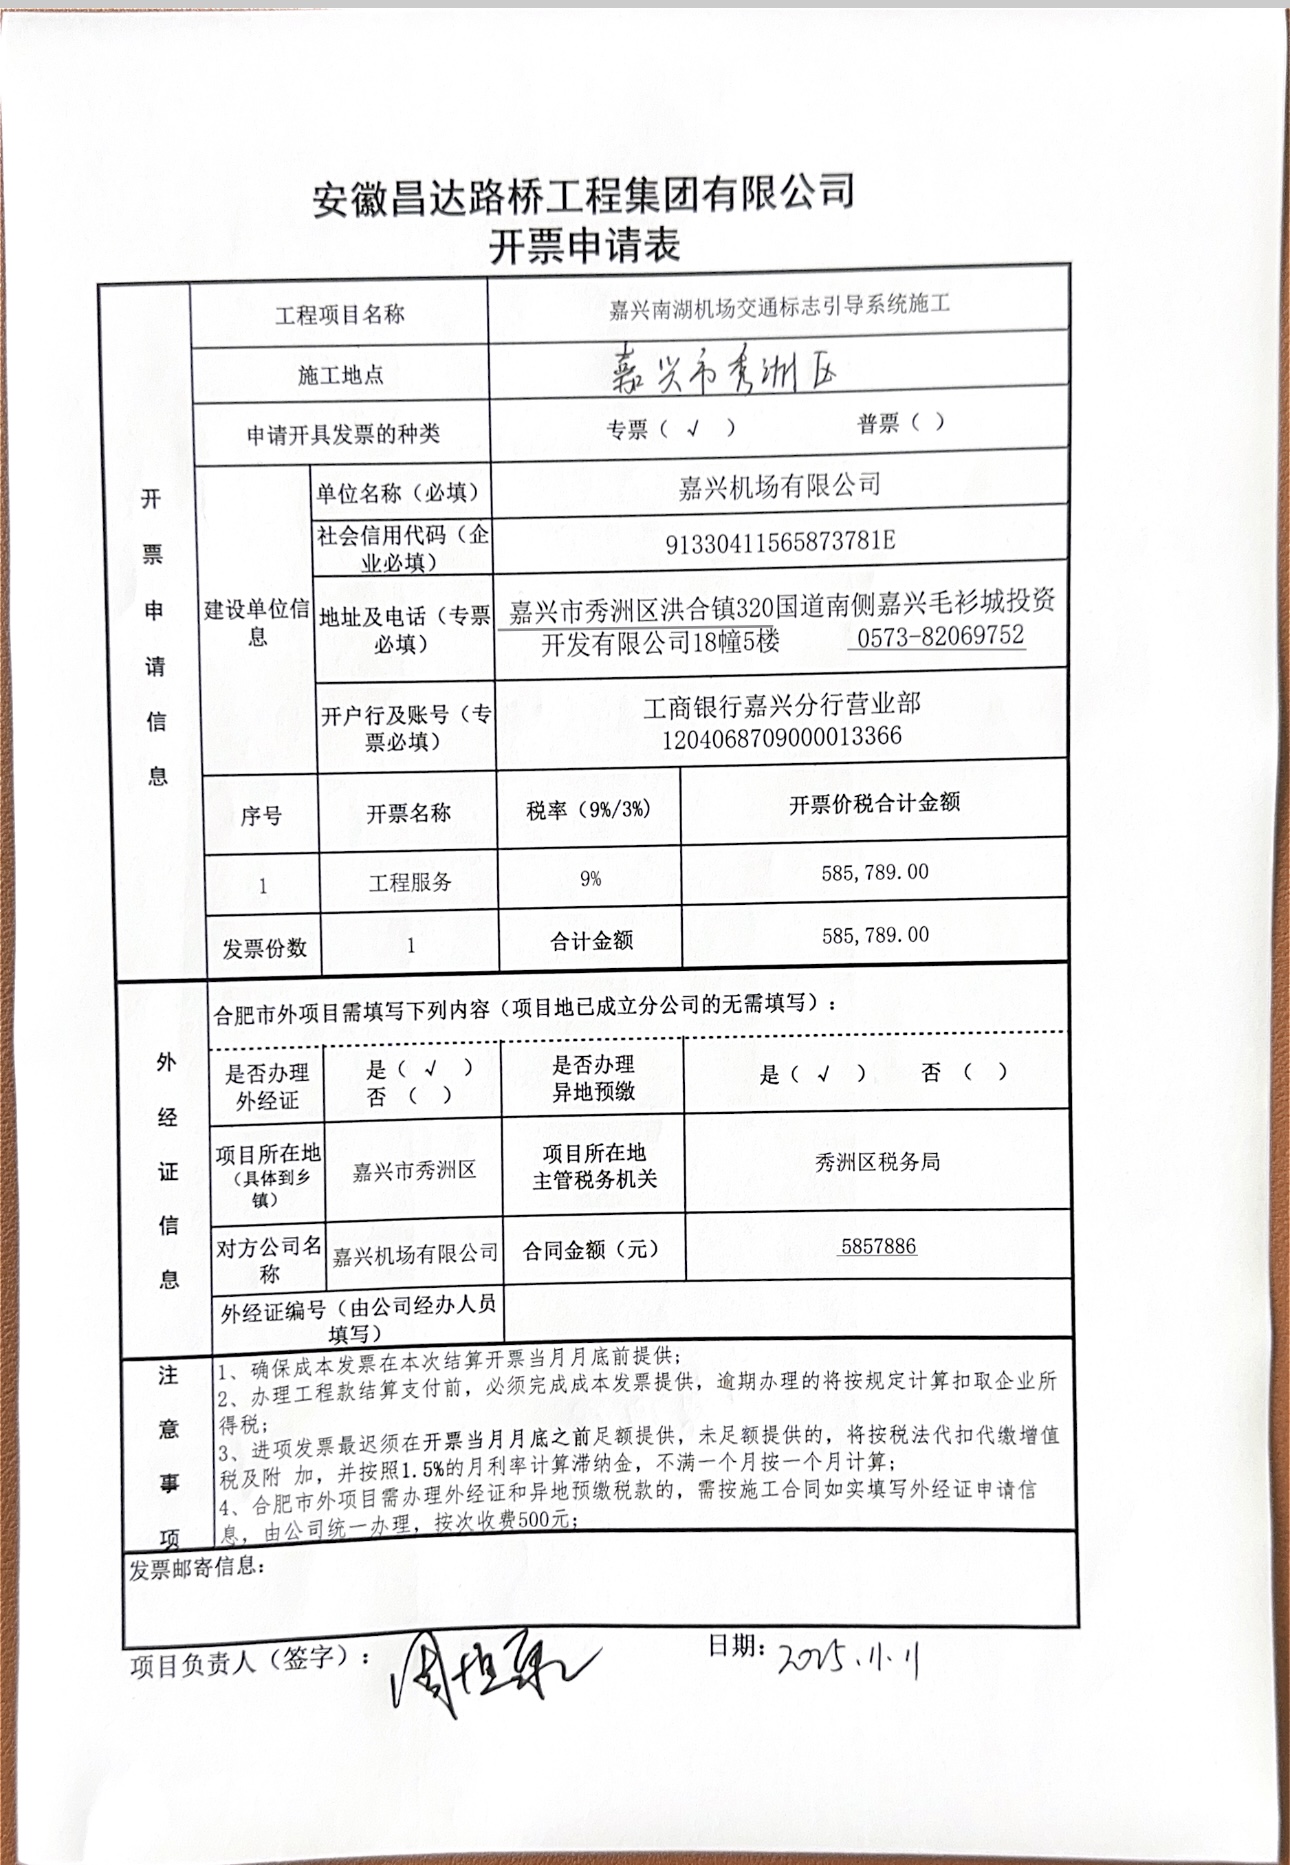 安徽昌达路桥工程集团有限公司
开票申请表
开票申请信息
工程项目名称 嘉兴南湖机场交通标志引导系统施工
施工地点 嘉兴市秀洲区
申请开具发票的种类 专票（ √ ） 普票（ ）
建设单位信息
单位名称（必填） 嘉兴机场有限公司
社会信用代码（企业必填） 91330411565873781E
地址及电话（专票必填） 嘉兴市秀洲区洪合镇320国道南侧嘉兴毛衫城投资
开发有限公司18幢5楼 0573-82069752
开户行及账号（专票必填） 工商银行嘉兴分行营业部
1204068709000013366
序号 开票名称 税率（9%/3%） 开票价税合计金额
1 工程服务 9% 585,789.00
发票份数 1 合计金额 585,789.00
外经证信息
合肥市外项目需填写下列内容（项目地已成立分公司的无需填写）：
是否办理外经证 是（ √ ） 否 （ ） 是否办理异地预缴 是（ √ ） 否 （ ）
项目所在地（具体到乡镇） 嘉兴市秀洲区 项目所在地主管税务机关 秀洲区税务局
对方公司名称 嘉兴机场有限公司 合同金额（元） 5857886
外经证编号（由公司经办人员填写）
注意事项
1、确保成本发票在本次结算开票当月月底前提供；
2、办理工程款结算支付前，必须完成成本发票提供，逾期办理的将按规定计算扣取企业所
得税；
3、进项发票最迟须在开票当月月底之前足额提供，未足额提供的，将按税法代扣代缴增值
税及附 加，并按照1.5%的月利率计算滞纳金，不满一个月按一个月计算；
4、合肥市外项目需办理外经证和异地预缴税款的，需按施工合同如实填写外经证申请信
息，由公司统一办理，按次收费500元；
发票邮寄信息：
项目负责人（签字）： 日期：2025.11.11